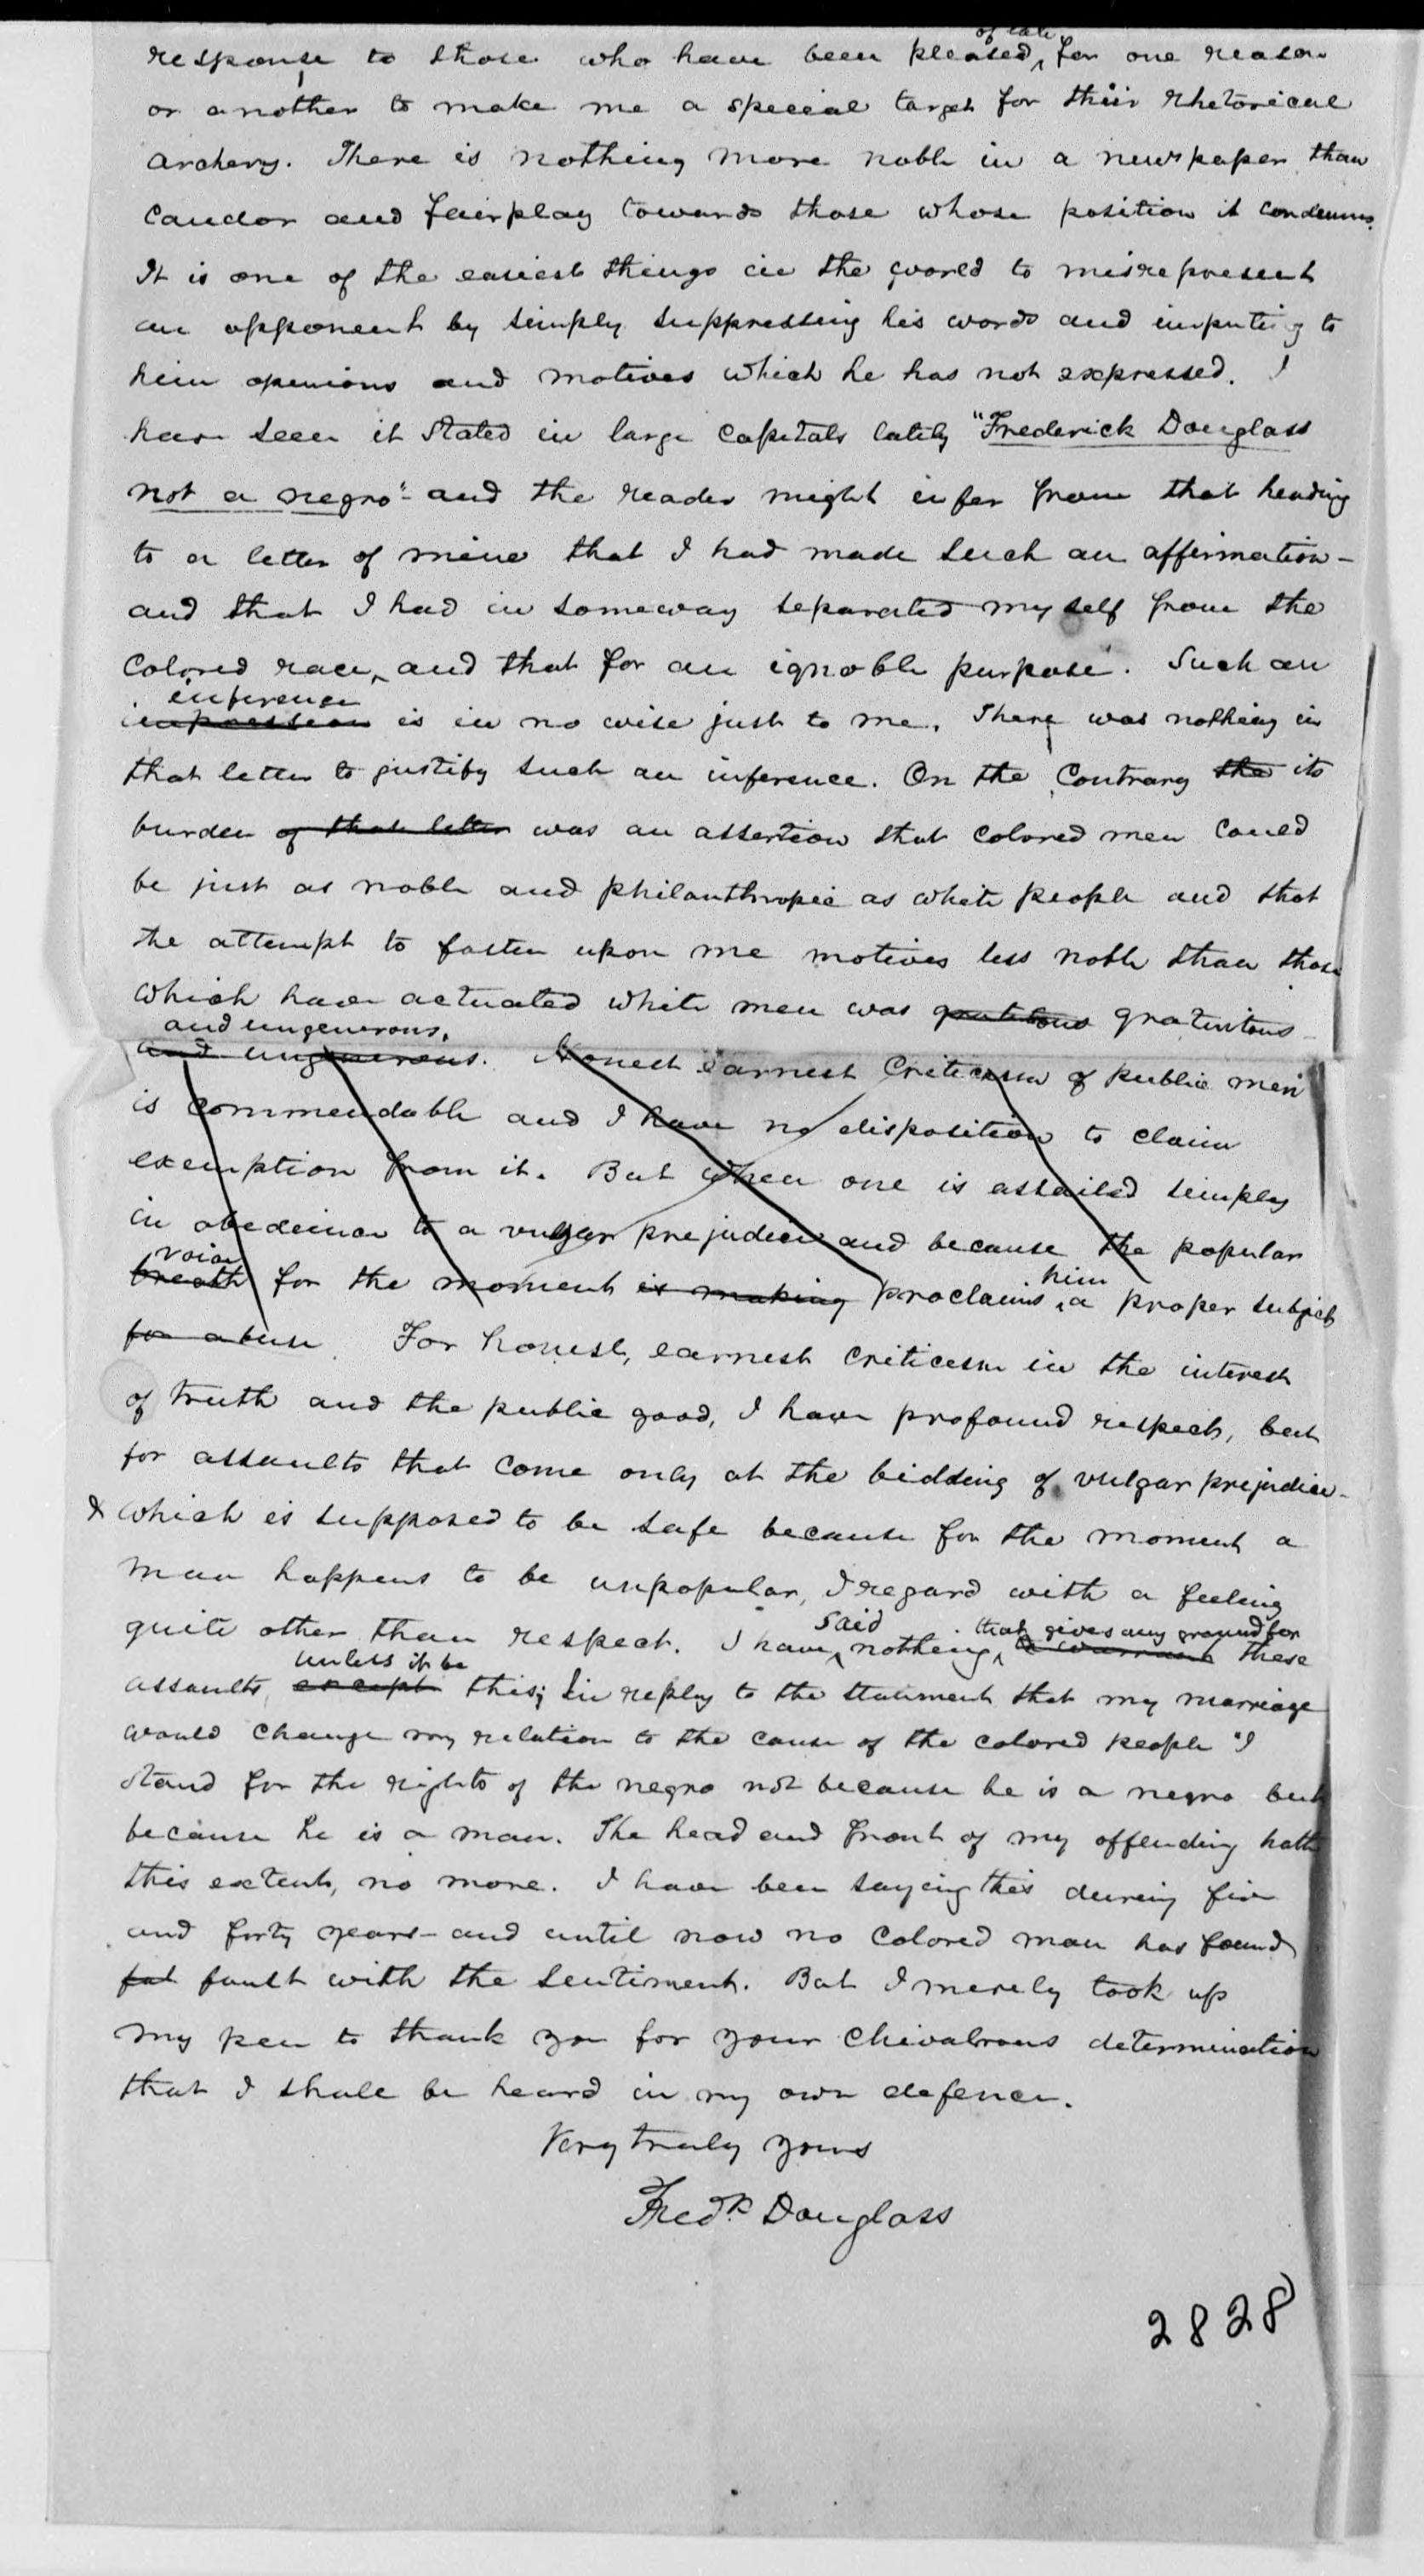 of late
response to those who have been pleased, for one reason
or another to make me a special target for their rhetorical
archery. There is nothing more noble in a newspaper than
candor and fairplay towards those whose position it condemns.
It is one of the easiest things in the world to misrepresent
an opponent by simply suppressing his words and imputing to
him opinions and motives which he has not expressed. I
have seen it stated in large capitals lately "Frederick Douglass
not a negro"- and the reader might infer from that heading
to a letter of mine that I had made such an affirmation-
and that I had in someway separated myself from the
Colored race, and that for an ignoble purpose. Such an
inference
impression is in no wise just to me. There was nothing in
that letter to justify such an inference. On the Contrary the its
burden of that letter was an assertion that colored men could
be just as noble and philanthropic as white people and that
the attempt to fasten upon me motives less noble than those
which have actuated white men was gratitous gratuitous
and ungenerous.
and ungenerous. Honest earnest Criticism of public men
is commendable and I have no disposition to claim
exemption from it. But when one is assailed simply
in obedience to a vulgar prejudice and because the popular
voice him
breath for the moment is making proclaims a proper subject
for abuse. For honest, earnest criticism in the interest
of truth and the public good, I have profound respect, but
for assaults that come only at the bidding of vulgar prejudice-
& which is supposed to be safe because for the moment a
man happens to be unpopular, I regard with a feeling
quite other than respect. I have, nothing, to warrant these
said that gives any ground for
unless it be
assaults, except this; In reply to the statement that my marriage
would change my relation to the cause of the colored people "I
stand for the rights of the negro not because he is a negro but
because he is a man. The head and front of my offending hath
this extent, no more. I have been saying this during five
and forty years- and until now no colored man has found
fat fault with the sentiment. But I merely took up
my pen to thank you for your chivalrous determination
that I shall be heard in my own defence.
Very truly yours
Fredk Douglass
2828